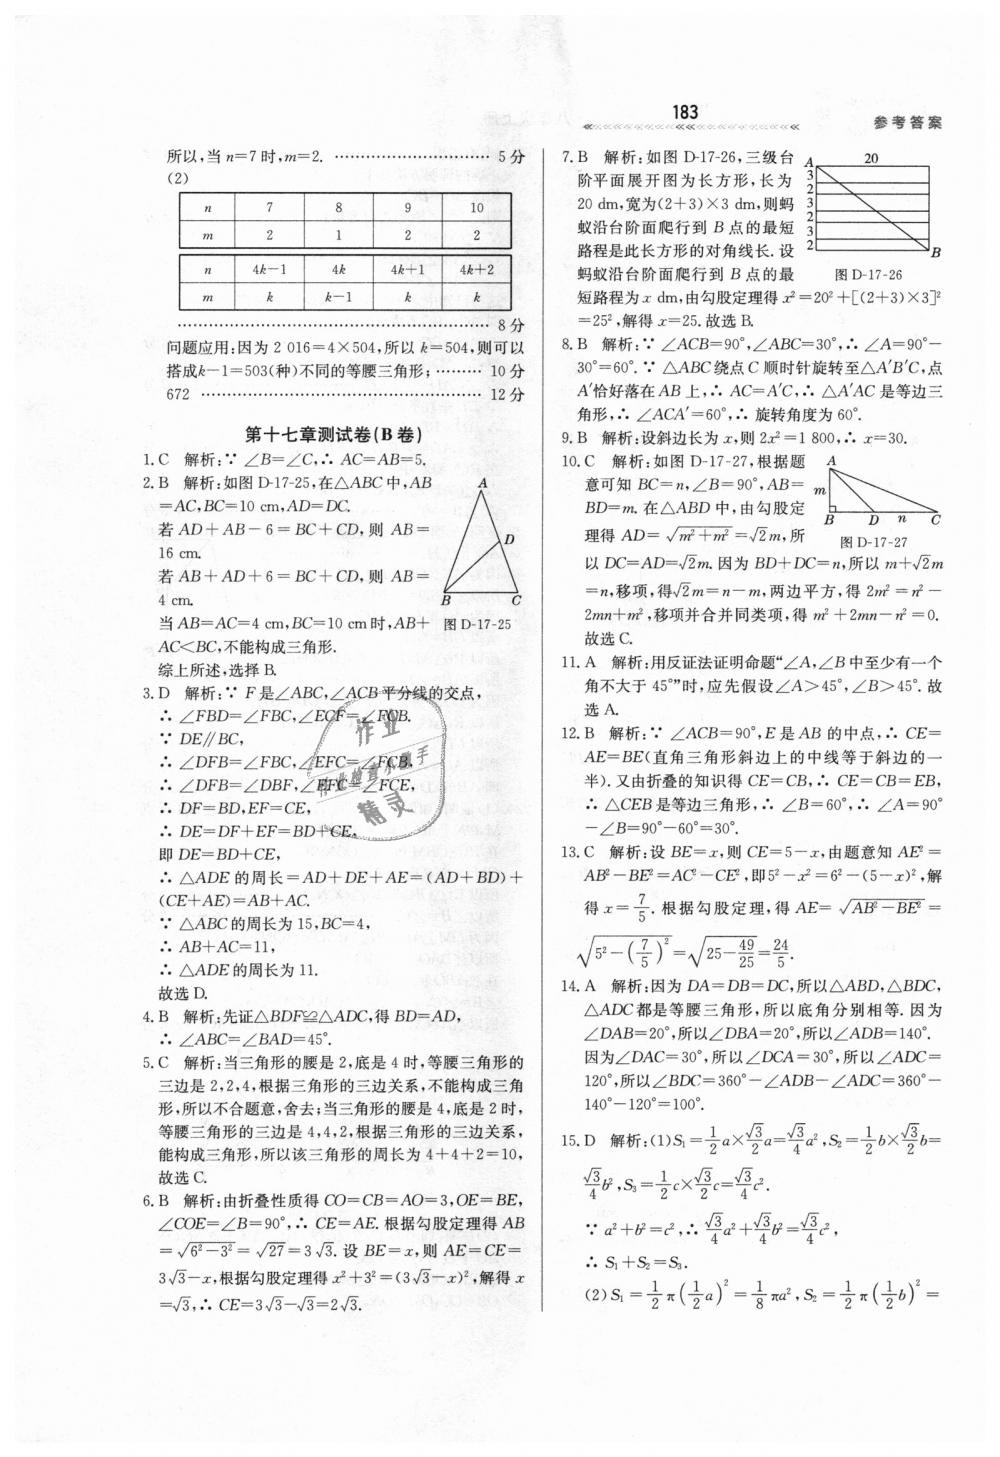 183
参考答案
所以,当 n=7 时,m=2. ………………………… 5 分
(2)
n 7 8 9 10
m 2 1 2 2
n 4k-1 4k 4k+1 4k+2
m k k-1 k k
………………………………………………… 8 分
问题应用:因为 2 016=4×504,所以 k=504,则可以
搭成k-1=503(种)不同的等腰三角形; ……… 10 分
672 ……………………………………………… 12 分
第十七章测试卷(B 卷)
1. C 解析:∵ ∠B=∠C,∴ AC=AB=5.
2. B 解析:如图 D-17-25,在△ABC 中,AB
=AC,BC=10 cm,AD=DC.
若 AD+AB-6=BC+CD,则 AB=
16 cm.
若 AB+AD+6=BC+CD,则 AB=
4 cm.
当 AB=AC=4 cm,BC=10 cm 时,AB+
AC<BC,不能构成三角形.
综上所述,选择 B.
A
D
B C
图 D-17-25
3. D 解析:∵ F 是∠ABC,∠ACB 平分线的交点,
∴ ∠FBD=∠FBC,∠ECF=∠FCB.
∵ DE∥BC,
∴ ∠DFB=∠FBC,∠EFC=∠FCB,
∴ ∠DFB=∠DBF,∠EFC=∠FCE,
∴ DF=BD,EF=CE,
∴ DE=DF+EF=BD+CE,
即 DE=BD+CE,
∴ △ADE 的周长=AD+DE+AE=(AD+BD)+
(CE+AE)=AB+AC.
∵ △ABC 的周长为 15,BC=4,
∴ AB+AC=11,
∴ △ADE 的周长为 11.
故选 D.
作业
作业检查小助手
精灵
4. B 解析:先证△BDF≌△ADC,得 BD=AD,
∴ ∠ABC=∠BAD=45°.
5. C 解析:当三角形的腰是 2,底是 4 时,等腰三角形的
三边是 2,2,4,根据三角形的三边关系,不能构成三角
形,所以不合题意,舍去;当三角形的腰是 4,底是 2 时,
等腰三角形的三边是 4,4,2,根据三角形的三边关系,
能构成三角形,所以该三角形的周长为 4+4+2=10,
故选 C.
6. B 解析:由折叠性质得 CO=CB=AO=3,OE=BE,
∠COE=∠B=90°,∴ CE=AE. 根据勾股定理得 AB
=√(6²-3²)=√27=3√3. 设 BE=x,则 AE=CE=
3√3-x,根据勾股定理得 x²+3²=(3√3-x)²,解得 x
=√3,∴ CE=3√3-√3=2√3.
7. B 解析:如图 D-17-26,三级台
阶平面展开图为长方形,长为
20 dm,宽为(2+3)×3 dm,则蚂
蚁沿台阶面爬行到 B 点的最短
路程是此长方形的对角线长. 设
蚂蚁沿台阶面爬行到 B 点的最
短路程为 x dm,由勾股定理得 x²=20²+[(2+3)×3]²
=25²,解得 x=25. 故选 B.
20
A
3
2
3
2
3
2
B
图 D-17-26
8. B 解析:∵ ∠ACB=90°,∠ABC=30°,∴ ∠A=90°-
30°=60°. ∵ △ABC 绕点 C 顺时针旋转至△A′B′C,点
A′恰好落在 AB 上,∴ AC=A′C,∴ △A′AC 是等边三
角形,∴ ∠ACA′=60°,∴ 旋转角度为 60°.
9. B 解析:设斜边长为 x,则 2x²=1 800,∴ x=30.
10. C 解析:如图 D-17-27,根据题
意可知 BC=n,∠B=90°,AB=
BD=m. 在△ABD 中,由勾股定
理得 AD=√(m²+m²)=√2m,所
以 DC=AD=√2m. 因为 BD+DC=n,所以 m+√2m
=n,移项,得√2m=n-m,两边平方,得 2m²=n²-
2mn+m²,移项并合并同类项,得 m²+2mn-n²=0.
故选 C.
A
m
B D n C
图 D-17-27
11. A 解析:用反证法证明命题“∠A,∠B 中至少有一个
角不大于 45°”时,应先假设∠A>45°,∠B>45°. 故
选 A.
12. B 解析:∵ ∠ACB=90°,E 是 AB 的中点,∴ CE=
AE=BE(直角三角形斜边上的中线等于斜边的一
半). 又由折叠的知识得 CE=CB,∴ CE=CB=EB,
∴ △CEB 是等边三角形,∴ ∠B=60°,∴ ∠A=90°
-∠B=90°-60°=30°.
13. C 解析:设 BE=x,则 CE=5-x,由题意知 AE²=
AB²-BE²=AC²-CE²,即5²-x²=6²-(5-x)²,解
得 x=7/5. 根据勾股定理,得 AE=√(AB²-BE²)=
√(5²-(7/5)²)=√(25-49/25)=24/5.
14. A 解析:因为 DA=DB=DC,所以△ABD,△BDC,
△ADC 都是等腰三角形,所以底角分别相等. 因为
∠DAB=20°,所以∠DBA=20°,所以∠ADB=140°.
因为∠DAC=30°,所以∠DCA=30°,所以∠ADC=
120°,所以∠BDC=360°-∠ADB-∠ADC=360°-
140°-120°=100°.
15. D 解析:(1)S₁=1/2a×√3/2a=√3/4a²,S₂=1/2b×√3/2b=
√3/4b²,S₃=1/2c×√3/2c=√3/4c².
∵ a²+b²=c²,∴ √3/4a²+√3/4b²=√3/4c²,
∴ S₁+S₂=S₃.
(2)S₁=1/2π(1/2a)²=1/8πa²,S₂=1/2π(1/2b)²=